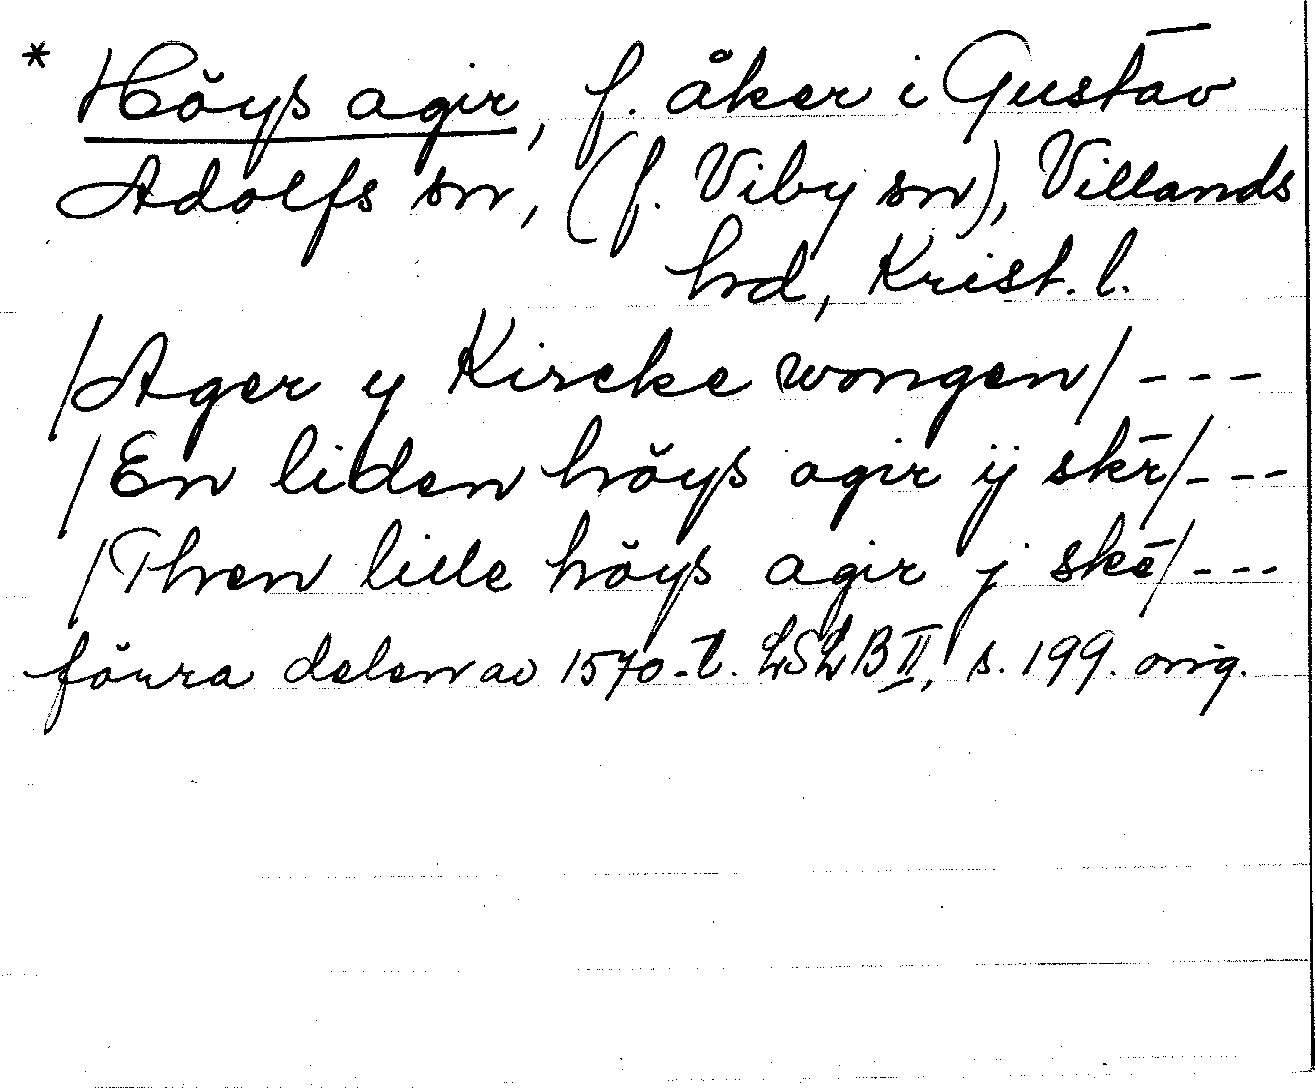 * Höys agir, f. åker i Gustav
Adolfs sn, (f. Viby sn), Villands
hd, Krist. l.
/Ager y Kircke wongen/ ---
/En liden höys agir ij skr̄/---
/Then lille höys agir j skē/---
förra delen av 1570-t. LSLB II, s. 199. orig.